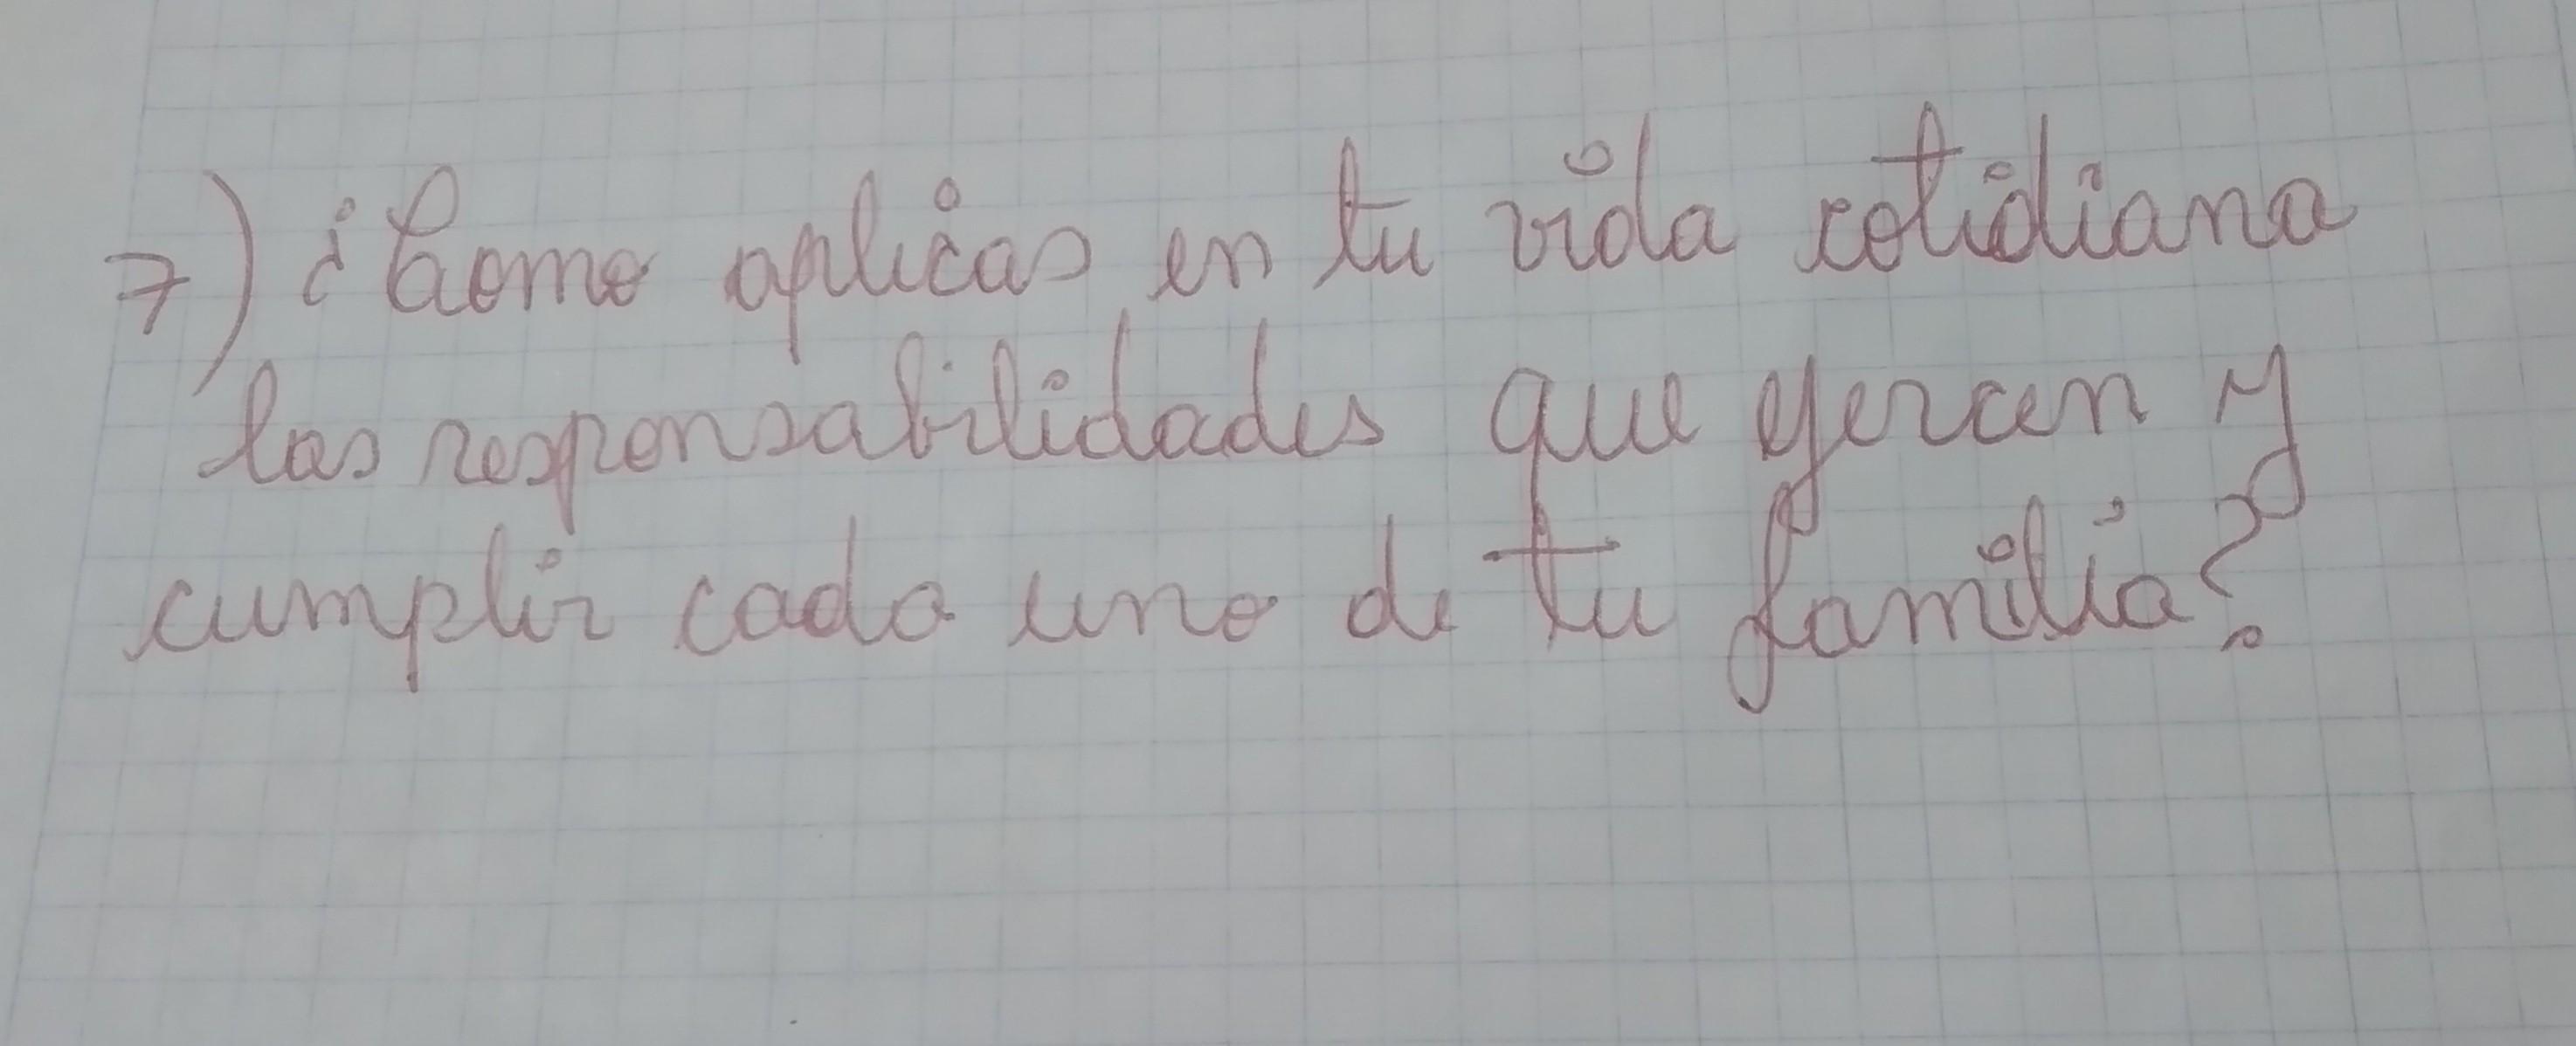 7) ¿Como aplicas en tu vida cotidiana
las responsabilidades que ejercen y
cumplir cada uno de tu familia?